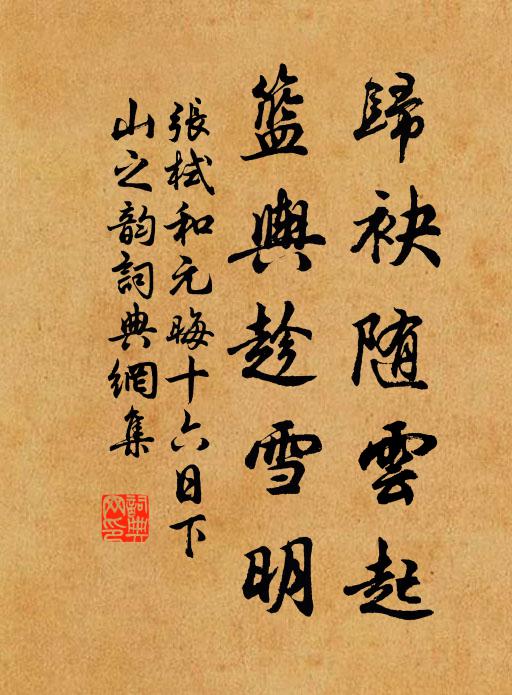 歸袂随雲起
籃輿趁雪明
張栻和元晦十六日下
山之韵詞典網集
詞典网印